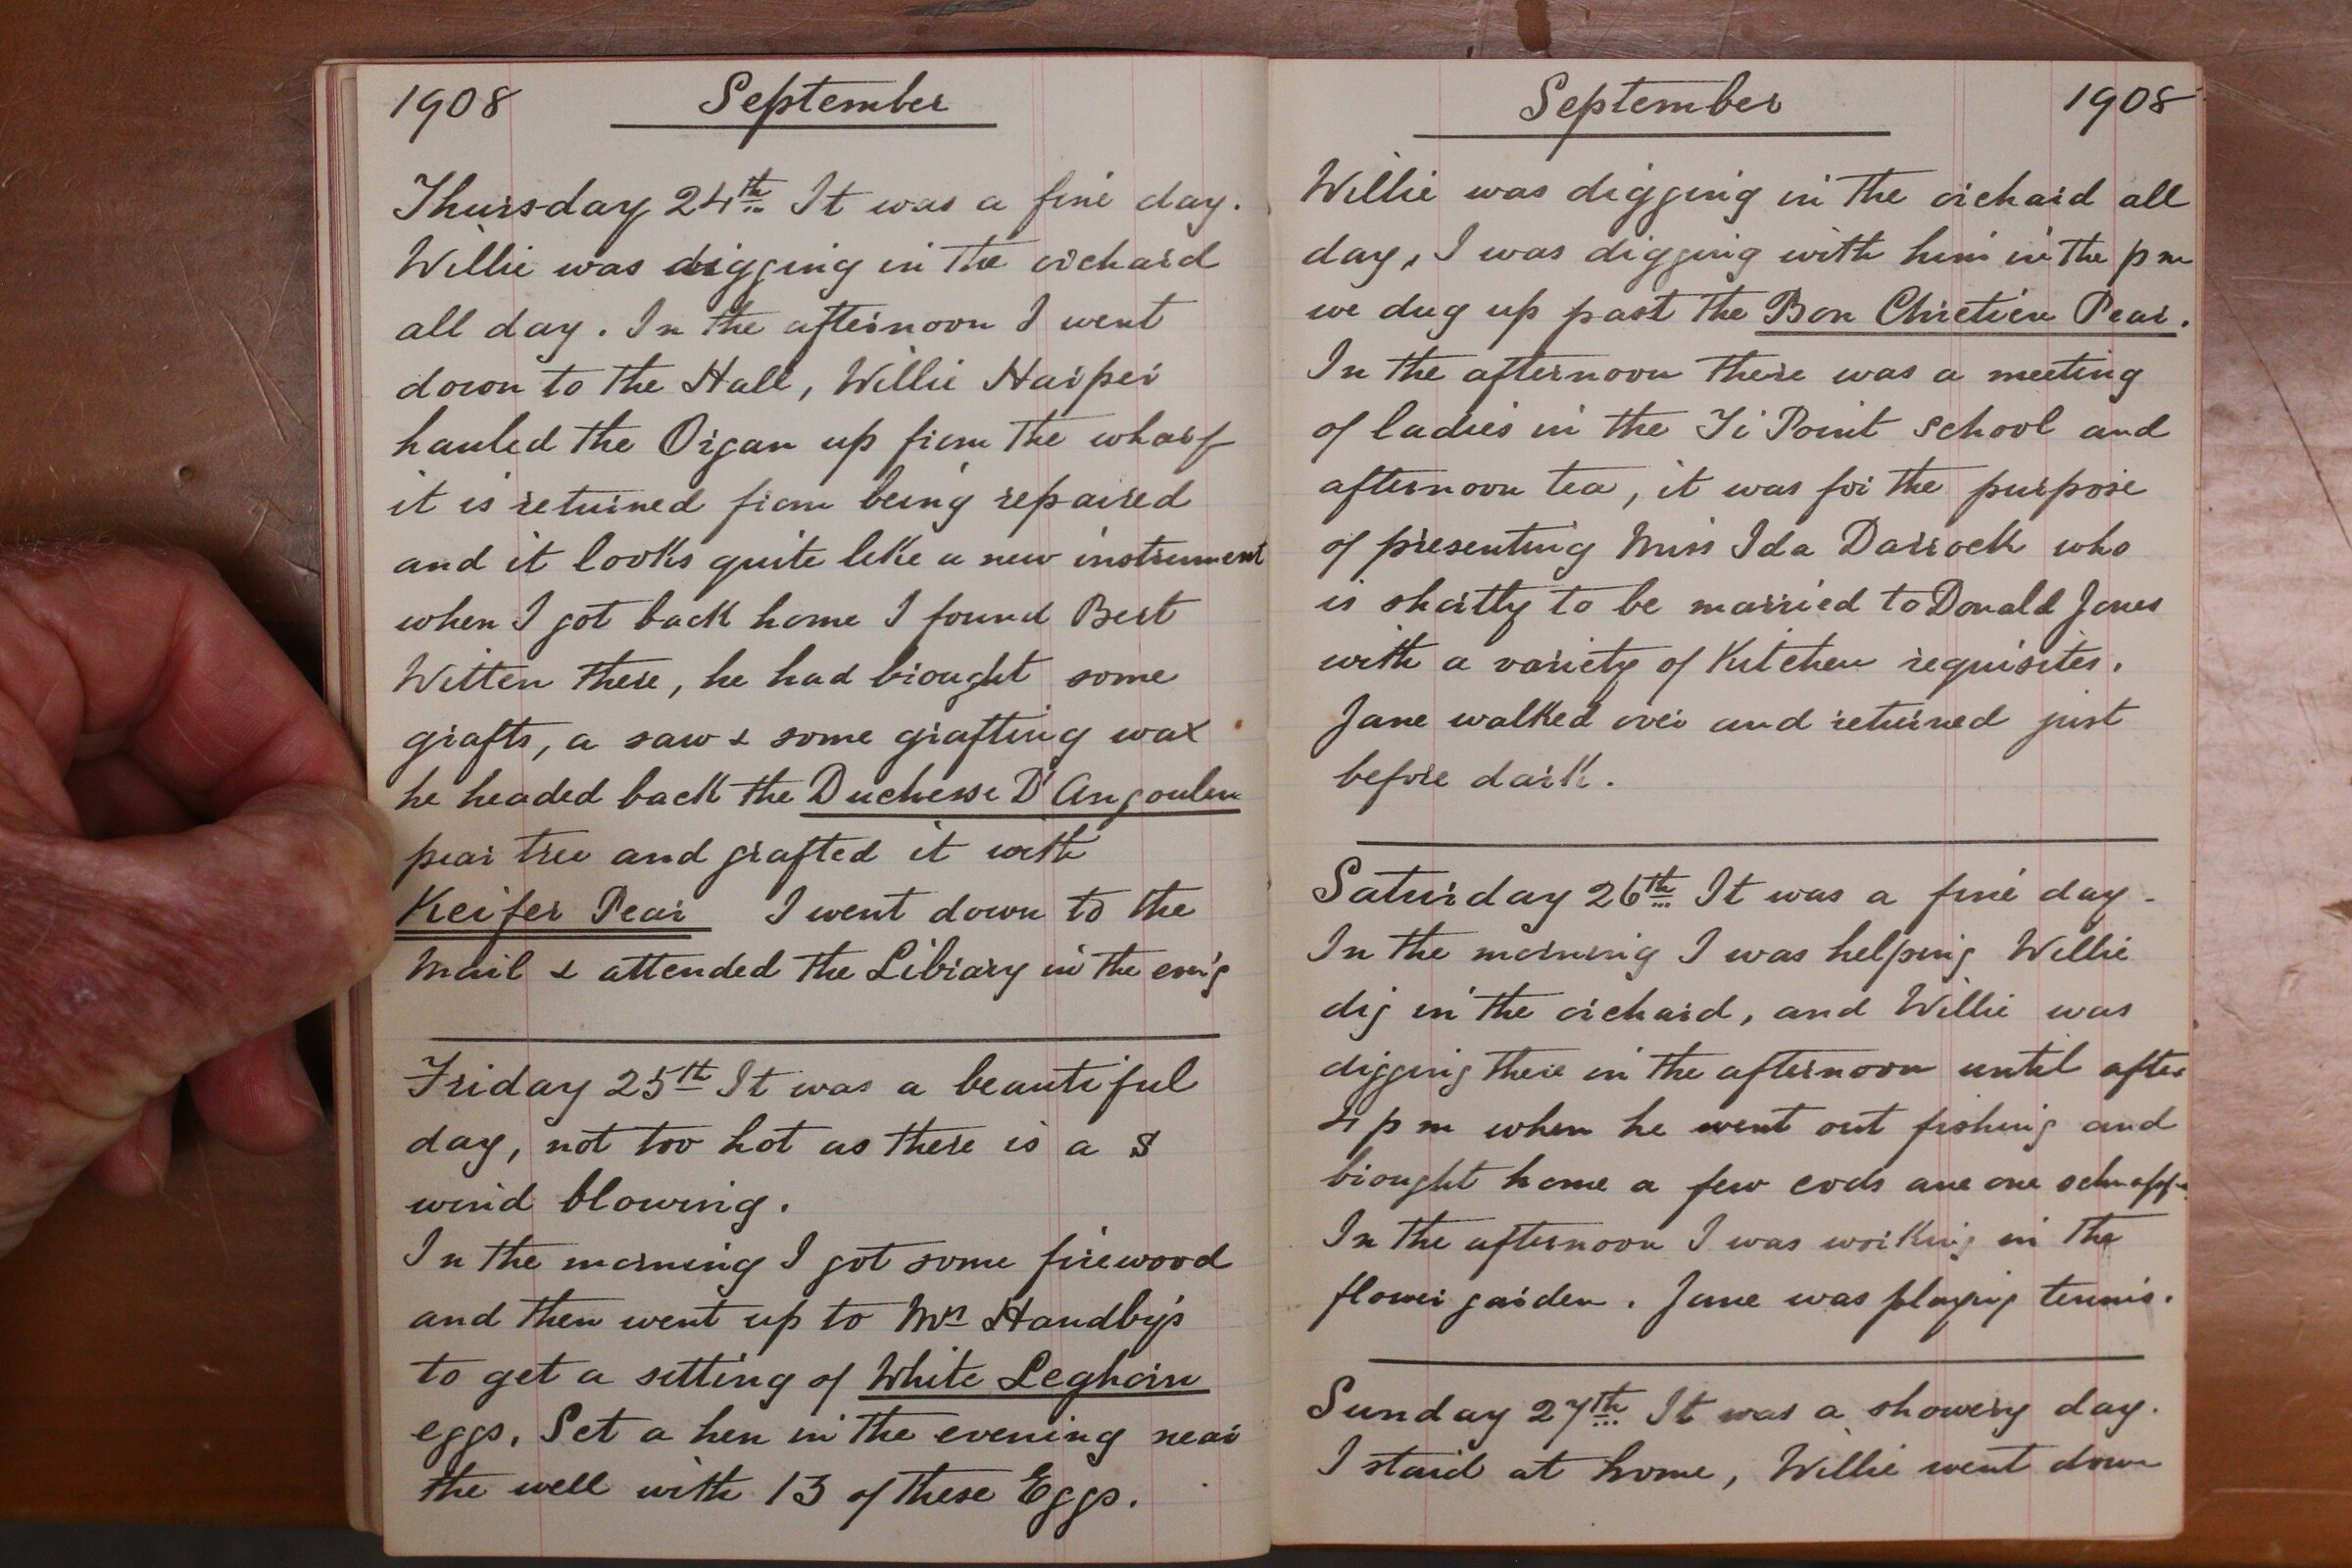 1908 September
Thursday 24th It was a fine day.
Willie was digging in the orchard
all day. In the afternoon I went
down to the Hall, Willie Harper
hauled the Organ up from the wharf
it is returned from being repaired
and it looks quite like a new instrument
when I got back home I found Bert
Witten there, he had brought some
grafts, a saw & some grafting wax
he headed back the Duchesse D'Angoulem
pear tree and grafted it with
Keifer Pear I went down to the
Mail & attended the Library in the even'g
Friday 25th It was a beautiful
day, not too hot as there is a S
wind blowing.
In the morning I got some firewood
and then went up to Mrs Handby's
to get a setting of White Leghorn
eggs. Set a hen in the evening near
the well with 13 of these Eggs.
September 1908
Willie was digging in the orchard all
day, I was digging with him in the pm
we dug up past the Bon Chretien Pear.
In the afternoon there was a meeting
of ladies in the Ti Point School and
afternoon tea, it was for the purpose
of presenting Miss Ida Darroch who
is shortly to be married to Donald Jones
with a variety of Kitchen requisites.
Jane walked over and returned just
before dark.
Saturday 26th It was a fine day.
In the morning I was helping Willie
dig in the orchard, and Willie was
digging there in the afternoon until after
4 p m when he went out fishing and
brought home a few cods ane one schnapper
In the afternoon I was working in the
flower garden. Jane was playing tennis.
Sunday 27th It was a showery day.
I staid at home, Willie went down